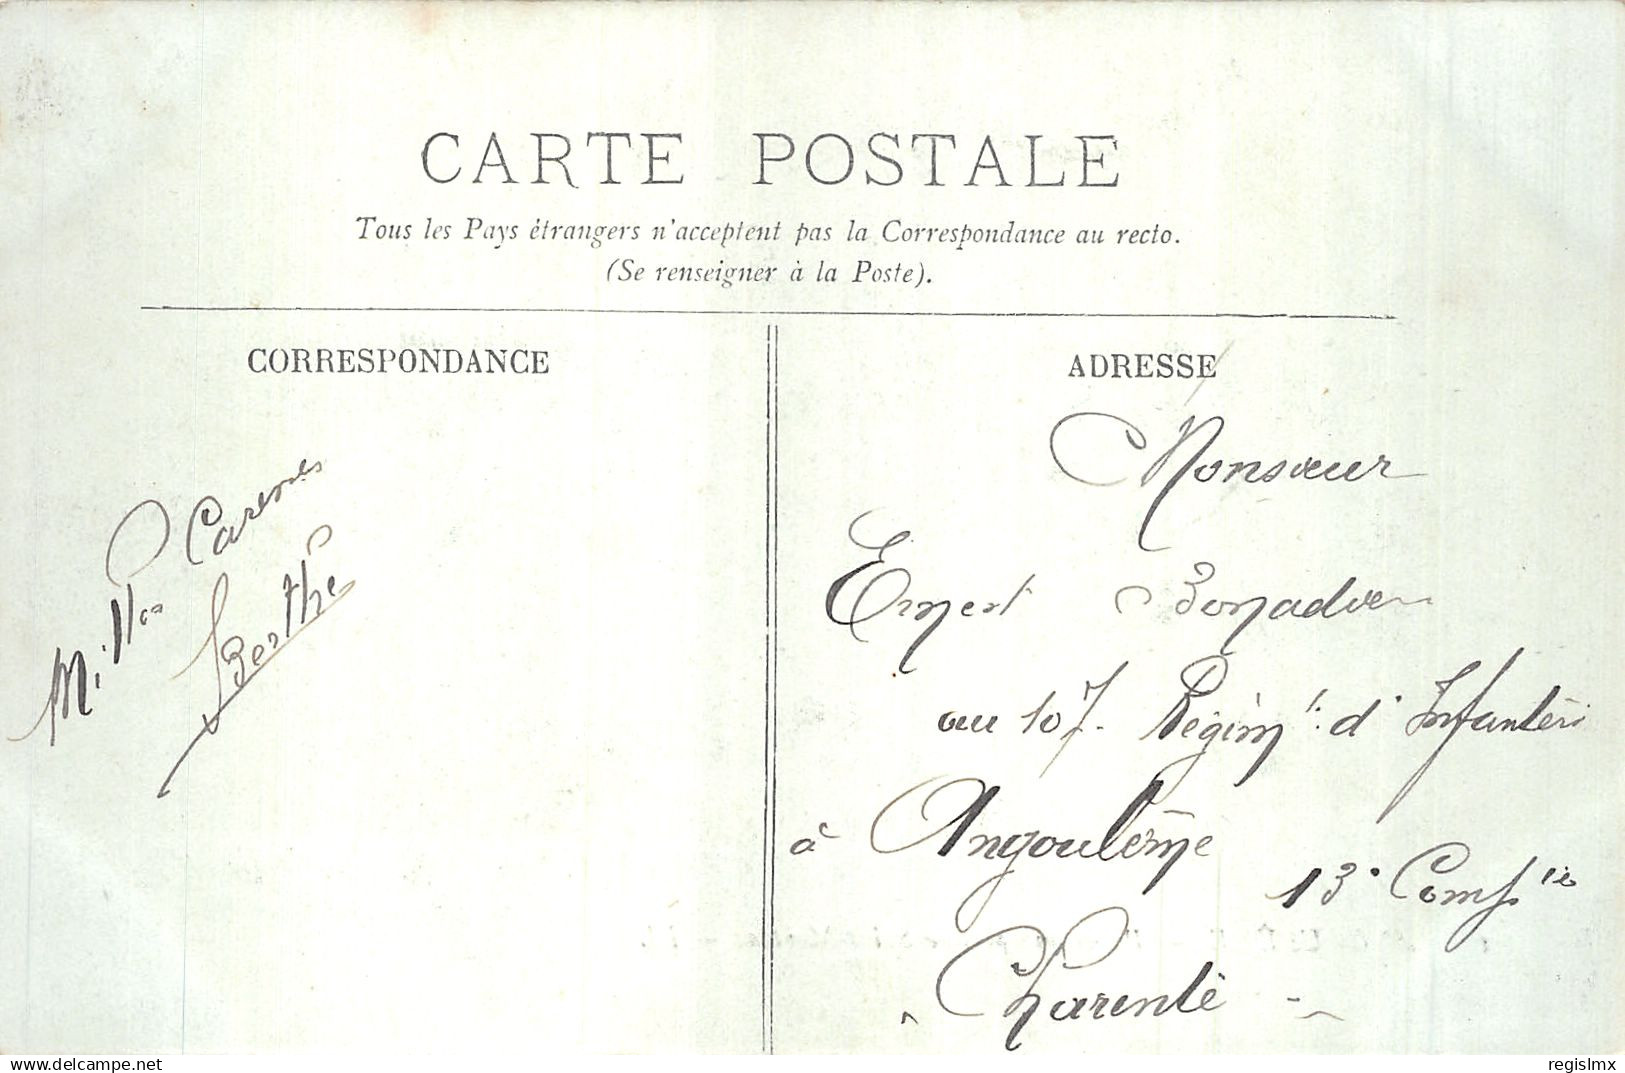 CARTE POSTALE
Tous les Pays étrangers n'acceptent pas la Correspondance au recto.
(Se renseigner à la Poste).
CORRESPONDANCE
Mille Caresses
Berthe
ADRESSE
Monsieur
Ernest Bonadieu
au 107. Régim t: d' Infanterie
à Angoulême
13e Comp ie
Charente
www.delcampe.net
regislmx